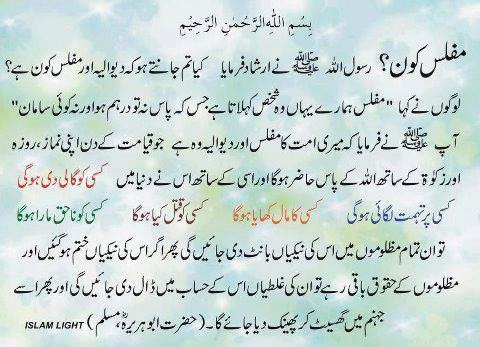 بِسْمِ اللّٰهِ الرَّحْمٰنِ الرَّحِيْمِ
مفلس کون؟ رسول اللہ ﷺ نے ارشاد فرمایا کیا تم جانتے ہو کہ دیوالیہ اور مفلس کون ہے؟
لوگوں نے کہا "مفلس ہمارے یہاں وہ شخص کہلاتا ہے جس کہ پاس نہ تو درہم ہو اور نہ کوئی سامان"
آپ ﷺ نے فرمایا کہ میری امت کا مفلس اور دیوالیہ وہ ہے جو قیامت کے دن اپنی نماز، روزہ
اور زکوٰۃ کے ساتھ اللہ کے پاس حاضر ہوگا اور اسی کے ساتھ اس نے دنیا میں کسی کو گالی دی ہوگی
کسی پر تہمت لگائی ہوگی کسی کا مال کھایا ہوگا کسی کو قتل کیا ہوگا کسی کو ناحق مارا ہوگا
تو ان تمام مظلوموں میں اس کی نیکیاں بانٹ دی جائیں گی پھر اگر اس کی نیکیاں ختم ہوگئیں اور
مظلوموں کے حقوق باقی رہے تو ان کی غلطیاں اس کے حساب میں ڈال دی جائیں گی اور پھر اسے
جہنم میں گھسیٹ کر پھینک دیا جائے گا۔ (حضرت ابو ہریرہؓ، مسلم) ISLAM LIGHT